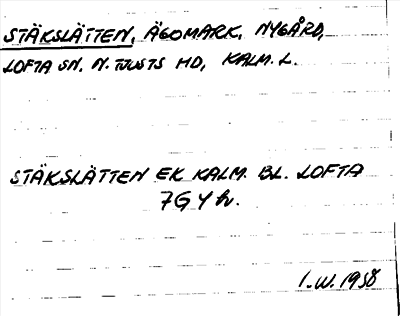 STÄKSLÄTTEN, ÄGOMARK, NYGÅRD,
LOFTA SN. N. TJUSTS HD, KALM. L.
STÄKSLÄTTEN EK KALM. BL. LOFTA
7G Y h.
I.W. 1958